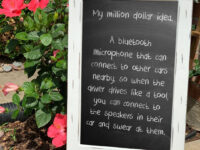 My million dollar idea.
A bluetooth
microphone that can
connect to other cars
nearby, so when the
driver drives like a tool
you can connect to
the speakers in their
car and swear at them.